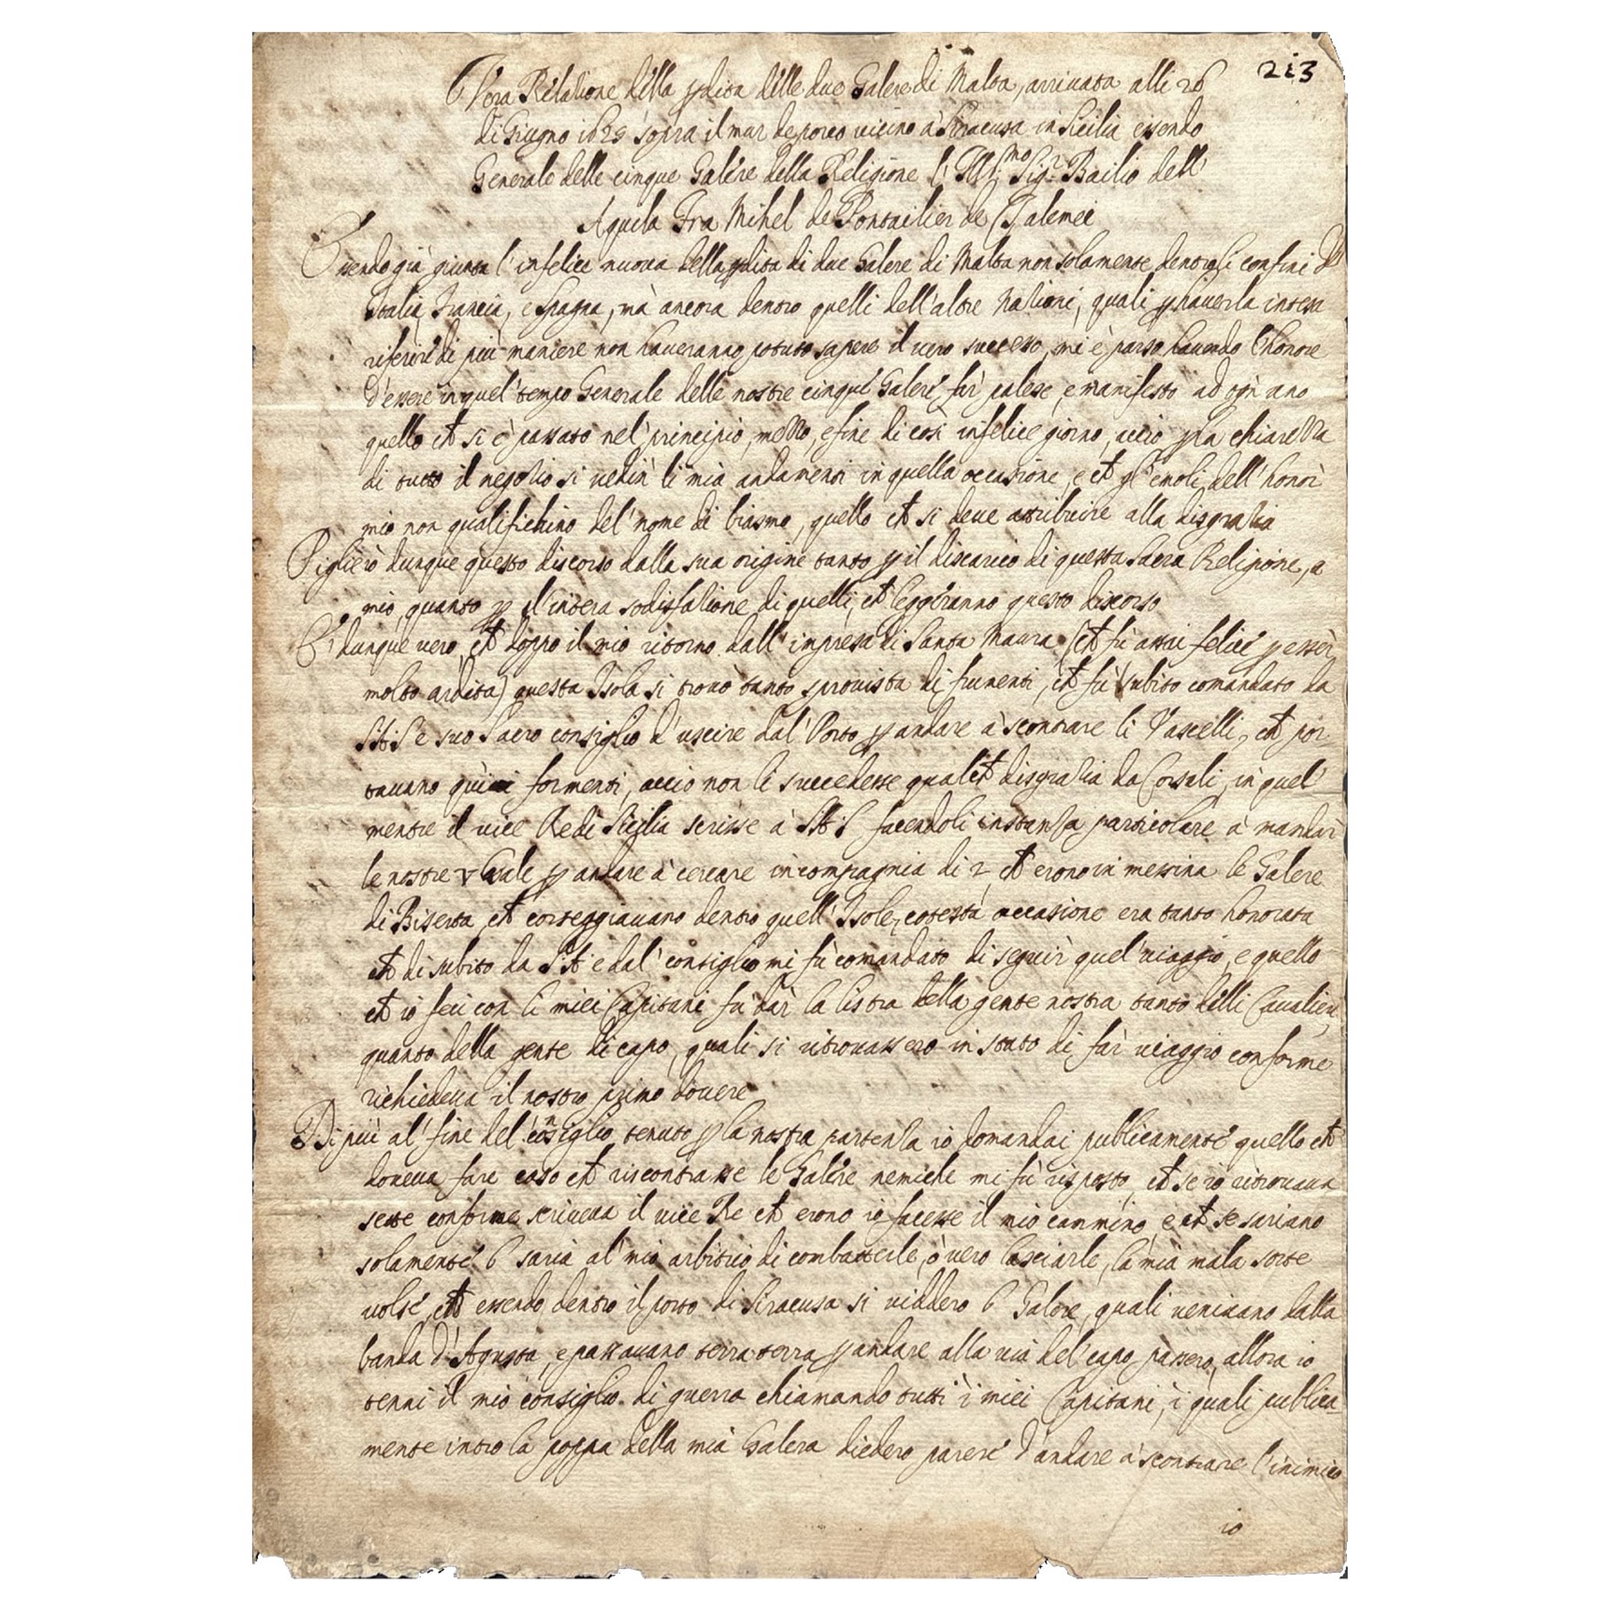 213
Vera Relatione della pdita delle due Galere di Malta, arrivata alli 26
di Giugno 1625 sopra il mar de porco vicino à Siracusa in Sicilia essendo
Generale delle cinque Galere della Religione l'Ill.mo Sig.r Bailio dell'
Aquila Fra Mihel de Pontailier de Talemei
Essendo già giunta l'infelice nuova della pdita di due Galere di Malta non solamente dentro li confini d'
Italia, Francia, e Spagna, mà ancora dentro quelli dell'altre Nationi, quali p haverla intesa
riferire di più maniere non haveranno potuto sapere il vero successo, mi è parso havendo l'honore
d'essere in quel' tempo Generale delle nostre cinque Galere, far' palese, e manifesto ad ogn'uno
quello ch si è passato nel' principio, mezzo, e fine di così infelice giorno, acciò p la chiarezza
di tutto il negotio si vedin' li mià andamenti in quella occasione, e ch gl'emoli dell' honor'
mio non qualifichino del' nome di biasmo, quello ch si deve attribuire alla disgratia
Piglierò dunque questo discorso dalla sua origine tanto p il discarico di questa Sacra Religione, a
mio, quanto p l'intera sodisfatione di quelli, ch leggeranno questo discorso
E' dunque vero, ch doppo il mio ritorno dall' impresa di Santa Maura (ch fù assai felice p esser'
molto ardita) questa Isola si trovò tanto sprovista di frumenti, ch fù subito comandato da
S A S e suo Sacro consiglio d'uscire dal' Porto p andare à scontrare li Vascelli, ch por-
tavano quivi formenti, acciò non li succedesse qualch disgratia da Corsali, in quel'
mentre il vice Re di Sicilia scrisse à S A S facendoli instanza particolare à mandar'
le nostre V Gale p andare à cercare in compagnia di 2 ch erono in messina le Galere
di Biserta, ch corteggiavano dentro quell' Isole, cotesta occasione era tanto honorata
ch di subito da S A e dal' consiglio mi fù comandato di seguir' quel' viaggio, e quello
ch io feci con li miei Capitani fù dar' la listra della gente nostra tanto delli Cavalieri,
quanto della gente di capo, quali si ritrovassero in stato di far' viaggio conforme
richiedeva il nostro primo dovere
Di più al' fine del' consiglio tenuto p la nostra partenza io domandai publicamente quello ch
doveva fare caso ch riscontrasse le Galere nemiche mi fù risposto, ch se io ritrovava
sette conforme scriveva il vice Re ch erono io facesse il mio cammino, e ch se sariano
solamente 6 saria al' mio arbitrio di combatterle, ò vero lasciarle, la mia mala sorte
volse, ch essendo dentro il porto di Siracusa si viddero 6 Galere, quali venivano dalla
banda d'Agusta, e passavano terra terra p andare alla via del' capo passero, allora io
tenni il mio consiglio di guerra chiamando tutti i miei Capitani, i quali publica-
mente intro la poppa della mia Galera diedero parere d'andare à scontrare l'inimico
io